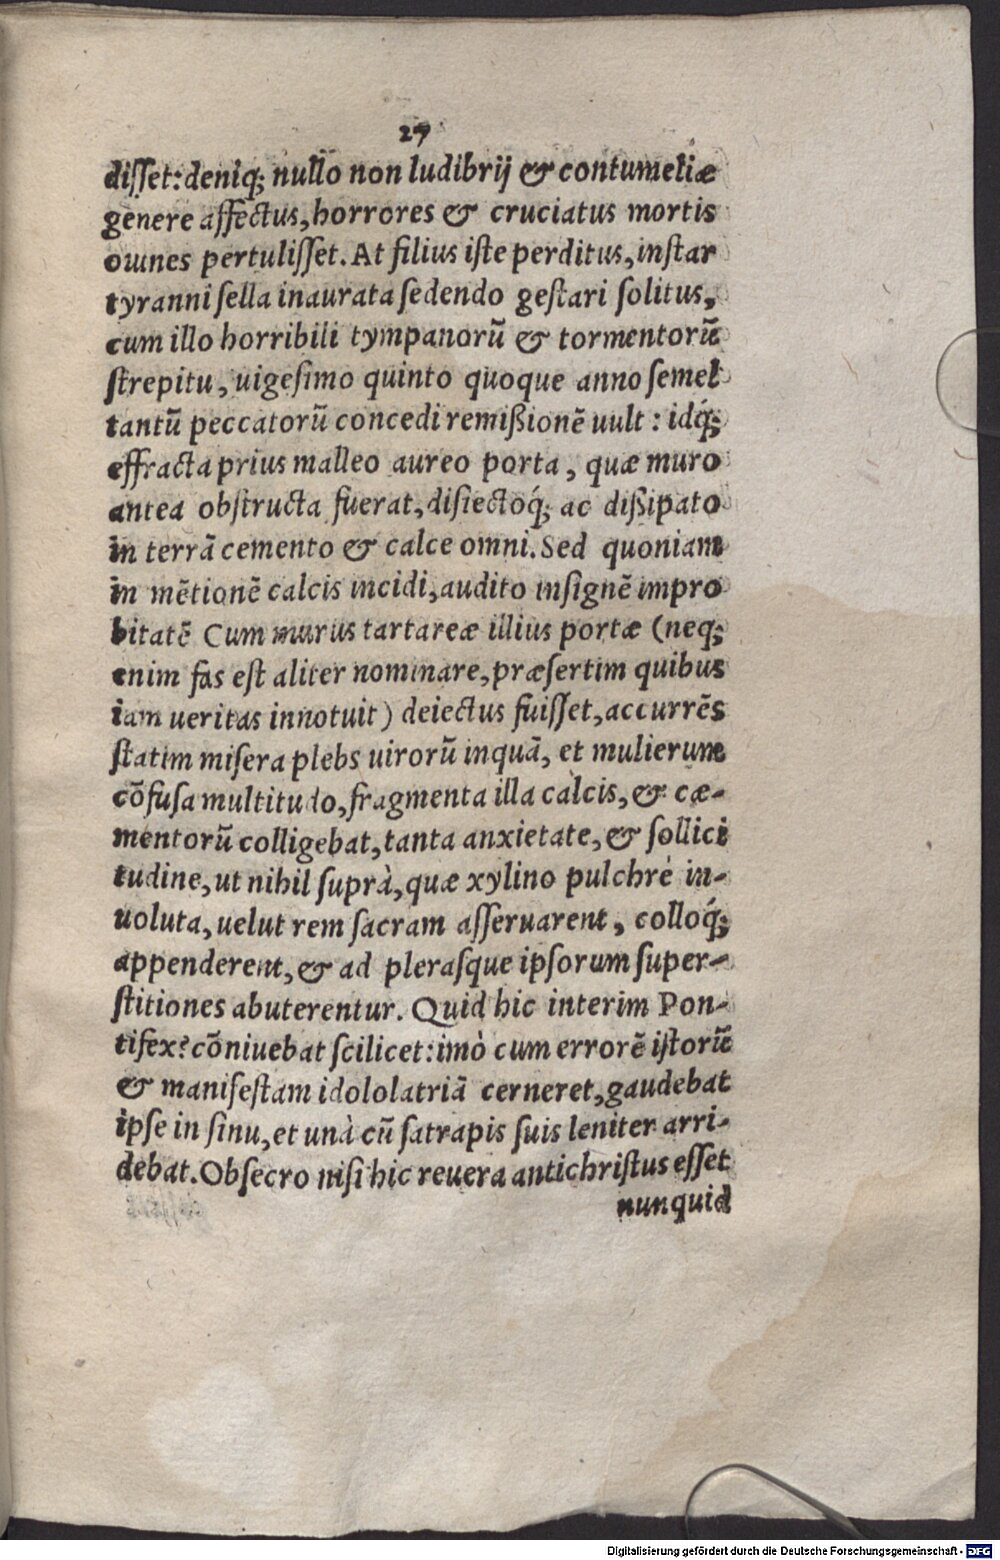 27
disſet: deniq; nullo non ludibrij & contumeliæ
genere affectus, horrores & cruciatus mortis
omnes pertuliſſet. At filius iſte perditus, inſtar
tyranni ſella inaurata ſedendo geſtari ſolitus,
cum illo horribili tympanorũ & tormentorũ
ſtrepitu, uigeſimo quinto quoque anno ſemel
tantũ peccatorũ concedi remiſsionẽ uult: idq́;
effracta prius malleo aureo porta, quæ muro
antea obſtructa fuerat, diſiectoq́; ac diſsipato
in terrã cemento & calce omni. Sed quoniam
in mẽtionẽ calcis incidi, audito inſignẽ impro
bitatẽ Cum murus tartareæ illius portæ (neq;
enim fas eſt aliter nominare, præſertim quibus
iam ueritas innotuit) deiectus fuiſſet, accurrẽs
ſtatim miſera plebs uirorũ inquã, et mulierum
cõfuſa multitudo, fragmenta illa calcis, & cæ-
mentorũ colligebat, tanta anxietate, & ſollici
tudine, ut nihil ſuprà, quæ xylino pulchrè in-
uoluta, uelut rem ſacram aſſeruarent, colloq́;
appenderent, & ad pleraſque ipſorum ſuper-
ſtitiones abuterentur. Quid hic interim Pon-
tifex? cõniuebat ſcilicet: imò cum errorẽ iſtorũ
& manifeſtam idololatriã cerneret, gaudebat
ipſe in ſinu, et unà cũ ſatrapis ſuis leniter arri-
debat. Obſecro niſi hic reuera antichriſtus eſſet
nunquid
Digitalisierung gefördert durch die Deutsche Forschungsgemeinschaft - DFG